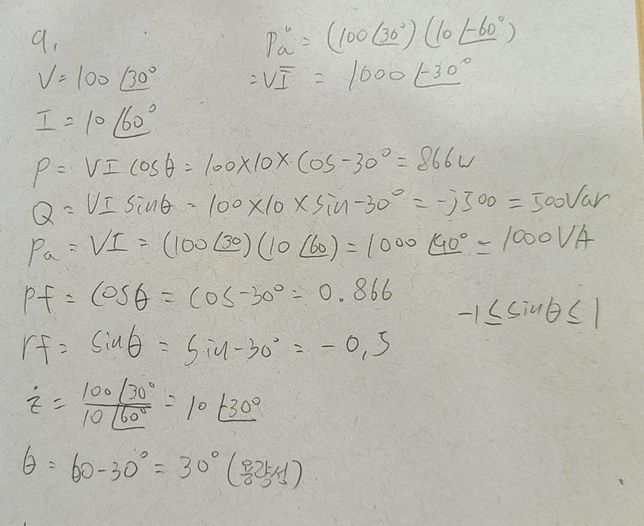 9.
V = 100 ∠30°
I = 10 ∠60°
Pa = (100 ∠30°) (10 ∠-60°)
= VĪ = 1000 ∠-30°
P = VI cosθ = 100×10× cos-30° = 866w
Q = VI sinθ = 100×10 × sin-30° = -j500 = 500Var
Pa = VI = (100 ∠30) (10 ∠60) = 1000 ∠90° = 1000VA
Pf = cosθ = cos-30° = 0.866
rf = sinθ = sin-30° = -0,5
-1 ≤ sinθ ≤ 1
ż = 100 ∠30° / 10 ∠60° = 10 ∠-30°
θ = 60-30° = 30° (용량성)